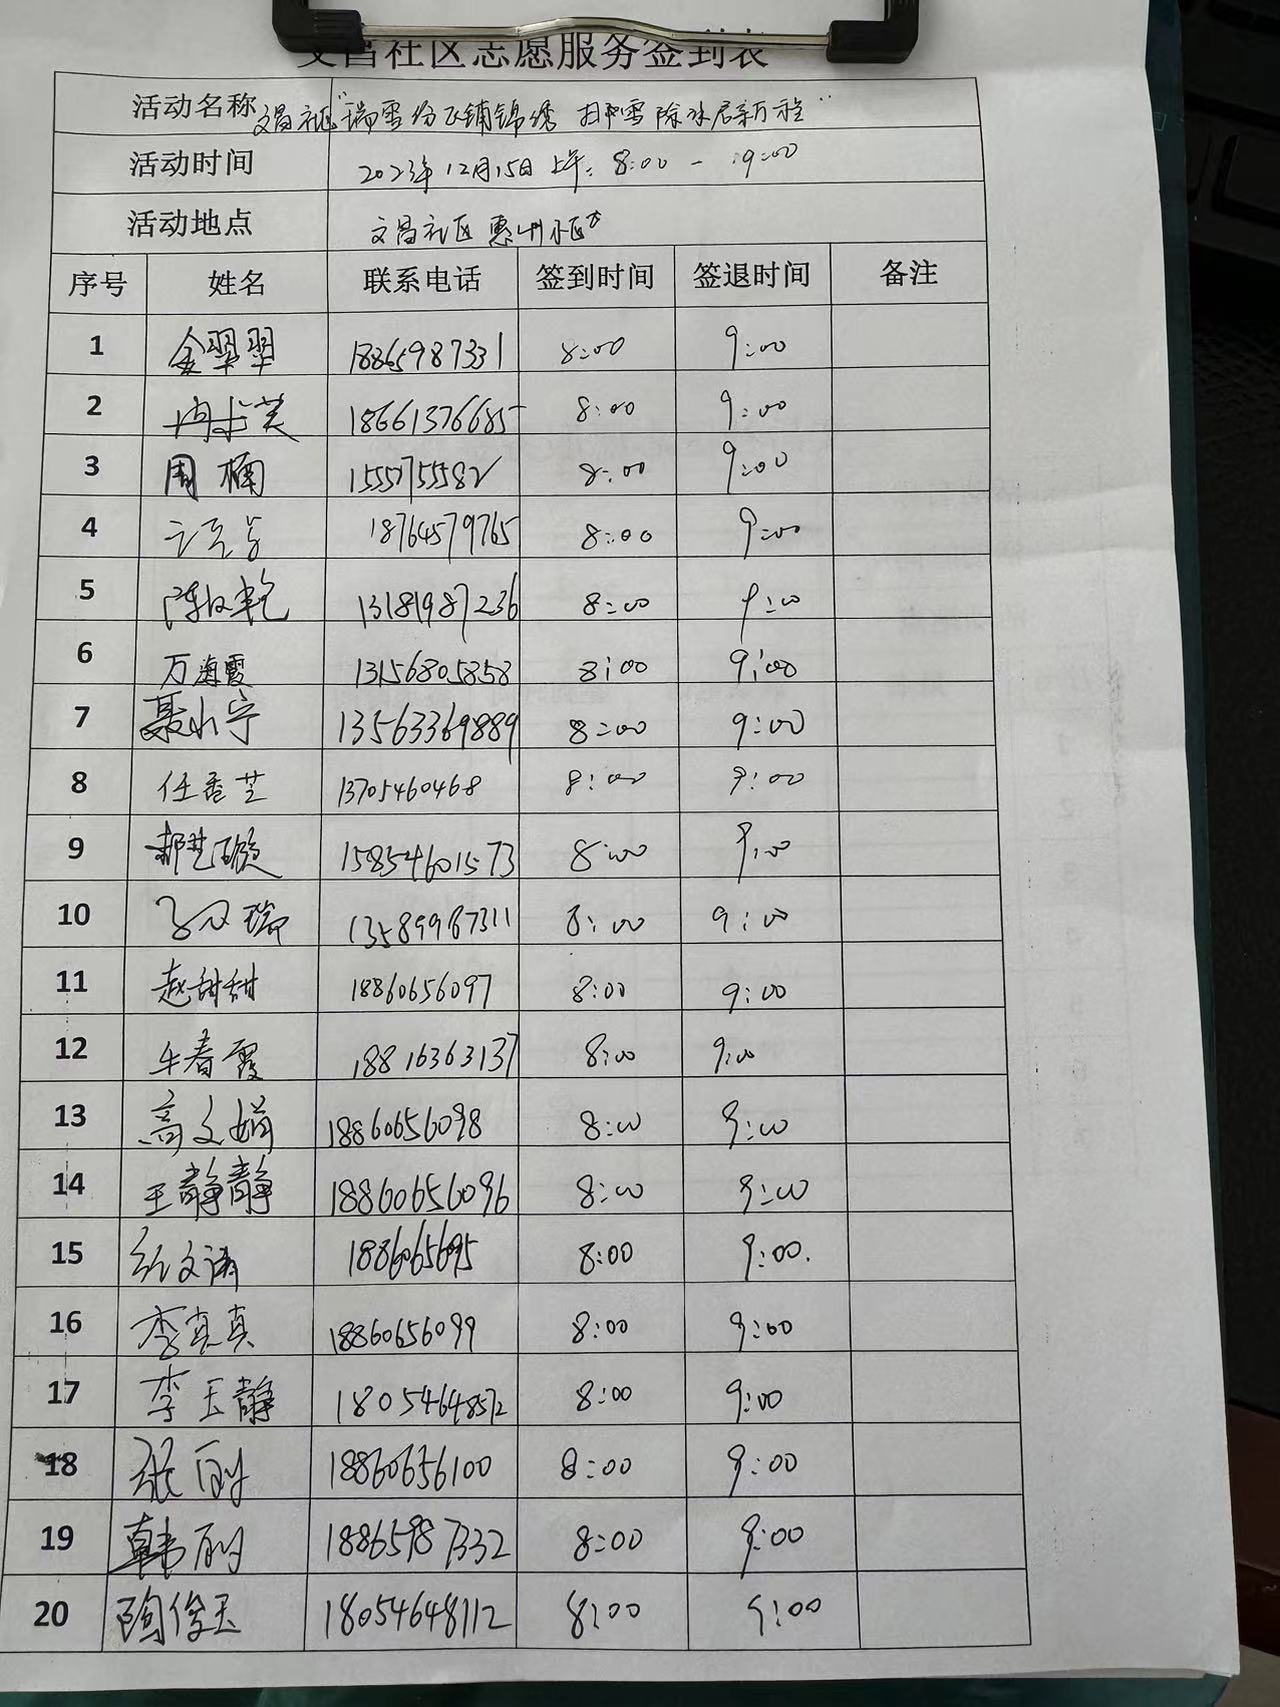 文昌社区志愿服务签到表
活动名称 文昌社区"瑞雪纷飞铺锦绣 扫雪除冰启新程"
活动时间 2023年12月15日上午: 8:00 - 9:00
活动地点 文昌社区惠州小区
序号 姓名 联系电话 签到时间 签退时间 备注
1 金翠翠 18865987331 8:00 9:00
2 18661376685 8:00 9:00
3 周楠 1555755582 8:00 9:00
4 18764579765 8:00 9:00
5 13181987236 8:00 9:00
6 万海霞 13156805858 8:00 9:00
7 聂小宁 13563369889 8:00 9:00
8 任秀芝 13705460468 8:00 9:00
9 郝艺璇 15854601573 8:00 9:00
10 13589987311 8:00 9:00
11 赵甜甜 18860656097 8:00 9:00
12 牛春霞 18816363137 8:00 9:00
13 高文娟 18860656098 8:00 9:00
14 王静静 18860656096 8:00 9:00
15 8:00 9:00.
16 李真真 18860656099 8:00 9:00
17 李玉静 18054648572 8:00 9:00
18 张丽 18860656100 8:00 9:00
19 韩丽 18865987332 8:00 9:00
20 陶俊玉 18054648112 8:00 9:00